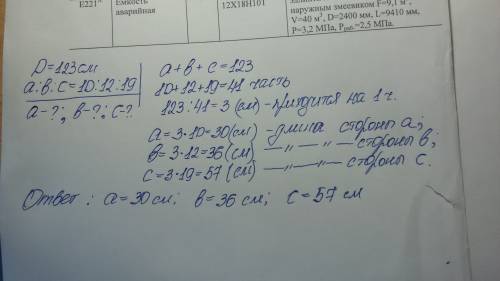 Е221
Емкость
аварийная
12Х18Н10Т
наружным змеевиком F=9,1 м²,
V=40 м³, D=2400 мм, L=9410 мм,
Р=3,2 МПа, Рраб.=2,5 МПа.
D=123см
a:в:с=10:12:19
a-?; в-?; с-?
a+в+с=123
10+12+19=41 часть
123:41=3 (см)-приходится на 1 ч.
a=3·10=30(см) -длина стороны a;
в=3·12=36(см) —〃—〃— стороны в;
с=3·19=57(см) —〃—〃— стороны с.
Ответ: a=30см; в=36 см; с=57 см